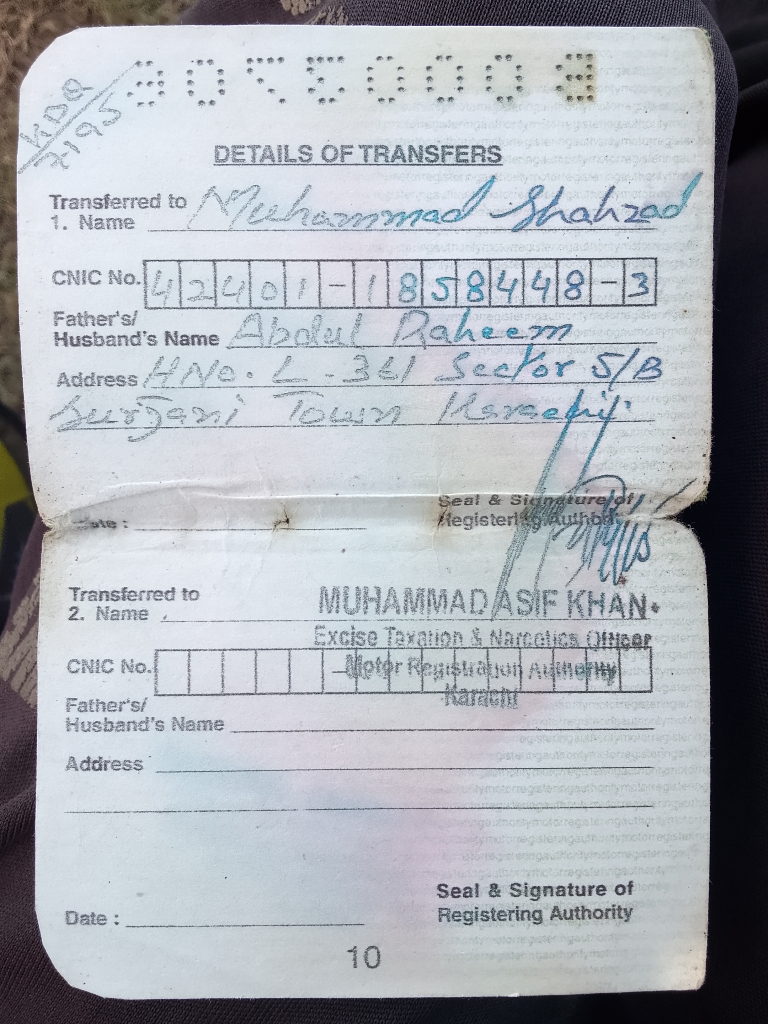 KDQ
7195
DETAILS OF TRANSFERS
Transferred to
1. Name Muhammad Shahzad
CNIC No. 42401-1858448-3
Father's/
Husband's Name Abdul Raheem
Address HNo. L-361 Sector 5/B
Surjani Town Karachi.
Date :
Seal & Signature of
Registering Authority
Transferred to
2. Name
MUHAMMAD ASIF KHAN
Excise Taxation & Narcotics Officer
CNIC No.
Motor Registration Authority
Karachi
Father's/
Husband's Name
Address
Seal & Signature of
Date : Registering Authority
10